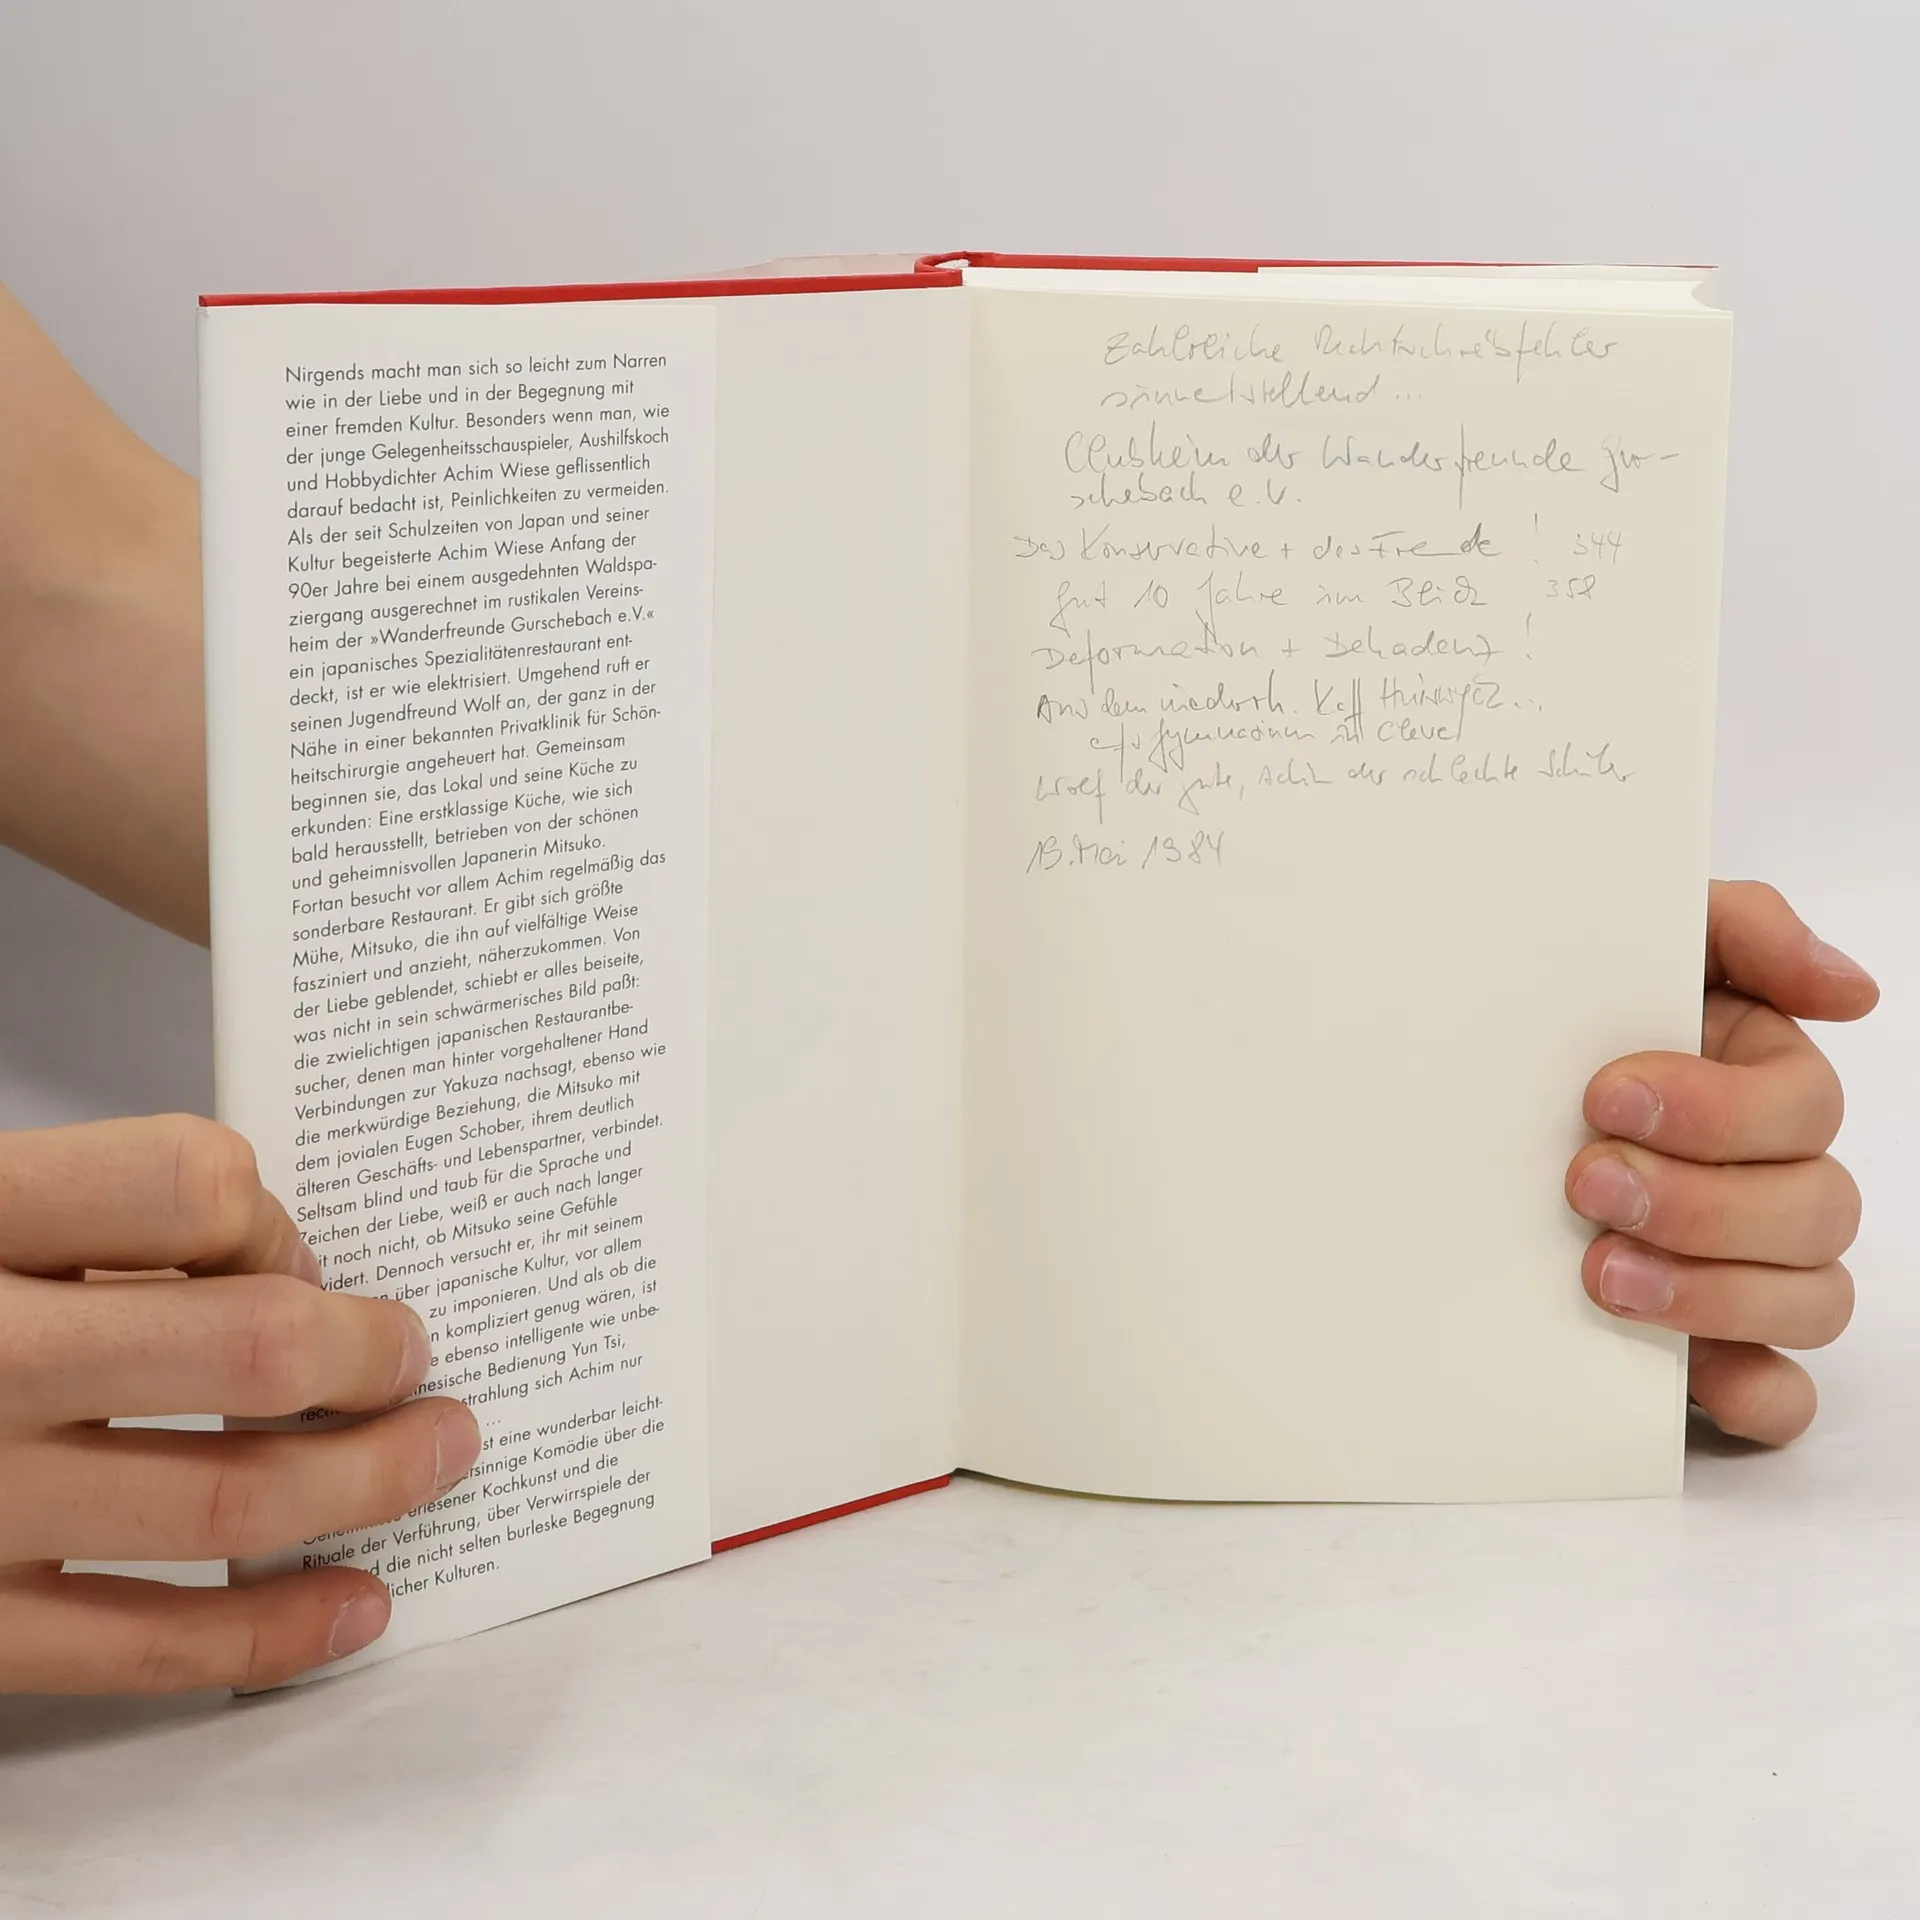 Nirgends macht man sich so leicht zum Narren
wie in der Liebe und in der Begegnung mit
einer fremden Kultur. Besonders wenn man, wie
der junge Gelegenheitsschauspieler, Aushilfskoch
und Hobbydichter Achim Wiese geflissentlich
darauf bedacht ist, Peinlichkeiten zu vermeiden.
Als der seit Schulzeiten von Japan und seiner
Kultur begeisterte Achim Wiese Anfang der
90er Jahre bei einem ausgedehnten Waldspa-
ziergang ausgerechnet im rustikalen Vereins-
heim der »Wanderfreunde Gurschebach e.V.«
ein japanisches Spezialitätenrestaurant ent-
deckt, ist er wie elektrisiert. Umgehend ruft er
seinen Jugendfreund Wolf an, der ganz in der
Nähe in einer bekannten Privatklinik für Schön-
heitschirurgie angeheuert hat. Gemeinsam
beginnen sie, das Lokal und seine Küche zu
erkunden: Eine erstklassige Küche, wie sich
bald herausstellt, betrieben von der schönen
und geheimnisvollen Japanerin Mitsuko.
Fortan besucht vor allem Achim regelmäßig das
sonderbare Restaurant. Er gibt sich größte
Mühe, Mitsuko, die ihn auf vielfältige Weise
fasziniert und anzieht, näherzukommen. Von
der Liebe geblendet, schiebt er alles beiseite,
was nicht in sein schwärmerisches Bild paßt:
die zwielichtigen japanischen Restaurantbe-
sucher, denen man hinter vorgehaltener Hand
Verbindungen zur Yakuza nachsagt, ebenso wie
die merkwürdige Beziehung, die Mitsuko mit
dem jovialen Eugen Schober, ihrem deutlich
älteren Geschäfts- und Lebenspartner, verbindet.
Seltsam blind und taub für die Sprache und
Zeichen der Liebe, weiß er auch nach langer
it noch nicht, ob Mitsuko seine Gefühle
widert. Dennoch versucht er, ihr mit seinem
über japanische Kultur, vor allem
zu imponieren. Und als ob die
n kompliziert genug wären, ist
e ebenso intelligente wie unbe-
nesische Bedienung Yun Tsi,
strahlung sich Achim nur
rech ...
st eine wunderbar leicht-
rsinnige Komödie über die
erlesener Kochkunst und die
Rituale der Verführung, über Verwirrspiele der
d die nicht selten burleske Begegnung
licher Kulturen.
Zahlreiche Rechtschreibfehler
sinnentstellend ...
Clubheim der Wanderfreunde Gur-
schebach e.V.
Das Konservative + das Fremde ! 344
gut 10 Jahre im Blick 358
Deformation + Dekadenz !
Aus dem niederrh. Kaff ...
Gymnasium in Cleve
Wolf der gute, Achim der schlechte Schüler
19. Mai 1984